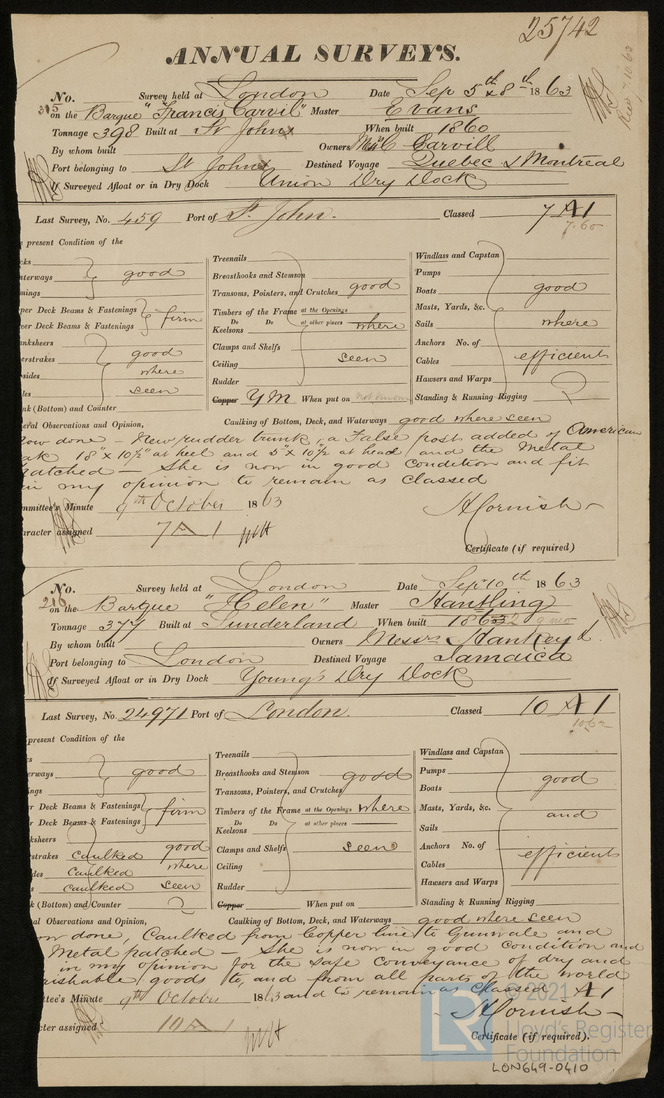 25742
ANNUAL SURVEYS.
No. Survey held at London Date Sep 5th & 8th 1863
on the Barque "Francis Carvil" Master Evans
Tonnage 398 Built at St Johns When built 1860
By whom built Owners Carvill
Port belonging to St Johns Destined Voyage Quebec & Montreal
If Surveyed Afloat or in Dry Dock Union Dry Dock
Last Survey, No. 459 Port of St. John. Classed 7 A1
7.60
present Condition of the
Treenails
Breasthooks and Stemson
Transoms, Pointers, and Crutches good
Timbers of the Frame at the Openings
Do Do at other places where
Keelsons
Clamps and Shelfs
Ceiling seen
Rudder
Copper YM When put on
Windlass and Capstan
Pumps
Boats good
Masts, Yards, &c.
Sails where
Anchors No. of
Cables efficient
Hawsers and Warps
Standing & Running Rigging
cks
terways good
mings
per Deck Beams & Fastenings
wer Deck Beams & Fastenings firm
anksheers
erstrakes good
sides where
les seen
nk (Bottom) and Counter
eral Observations and Opinion, Caulking of Bottom, Deck, and Waterways good where seen
ow done - New rudder trunk, a False post added of American
ak 18" x 10½" at heel and 5" x 10½ at head and the Metal
patched - She is now in good Condition and fit
in my opinion to remain as Classed
mmittee's Minute 9th October 1863
aracter assigned 7 A 1
A Cornish
Certificate (if required)
No. Survey held at London Date Sep 10th 1863
216
on the Barque "Helen" Master Hantling
Tonnage 377 Built at Sunderland When built
By whom built Owners Messrs Hankey &
Port belonging to London Destined Voyage Jamaica
If Surveyed Afloat or in Dry Dock Young's Dry Dock
Last Survey, No. 24971 Port of London. Classed 10 A1
10.62
present Condition of the
Treenails
Breasthooks and Stemson good
Transoms, Pointers, and Crutches
Timbers of the Frame at the Openings where
Do Do at other places
Keelsons
Clamps and Shelfs seen
Ceiling
Rudder
Copper When put on
Windlass and Capstan
Pumps
Boats good
Masts, Yards, &c. and
Sails
Anchors No. of efficient
Cables
Hawsers and Warps
Standing & Running Rigging
erways good
ngs
r Deck Beams & Fastenings firm
r Deck Beams & Fastenings
ksheers
strakes caulked good
des caulked where
s caulked seen
k (Bottom) and Counter
al Observations and Opinion, Caulking of Bottom, Deck, and Waterways good where seen
ow done, Caulked from Copper line to Gunwale and
Metal patched - She is now in good Condition and
in my opinion for the safe conveyance of dry and
rishable goods to, and from all parts of the world
ttee's Minute 9th October 1863 and to remain as Classed A1
cter assigned 10 A 1
A Cornish
Certificate (if required).
LR © 2021
Lloyd's Register
Foundation
LON649-0410